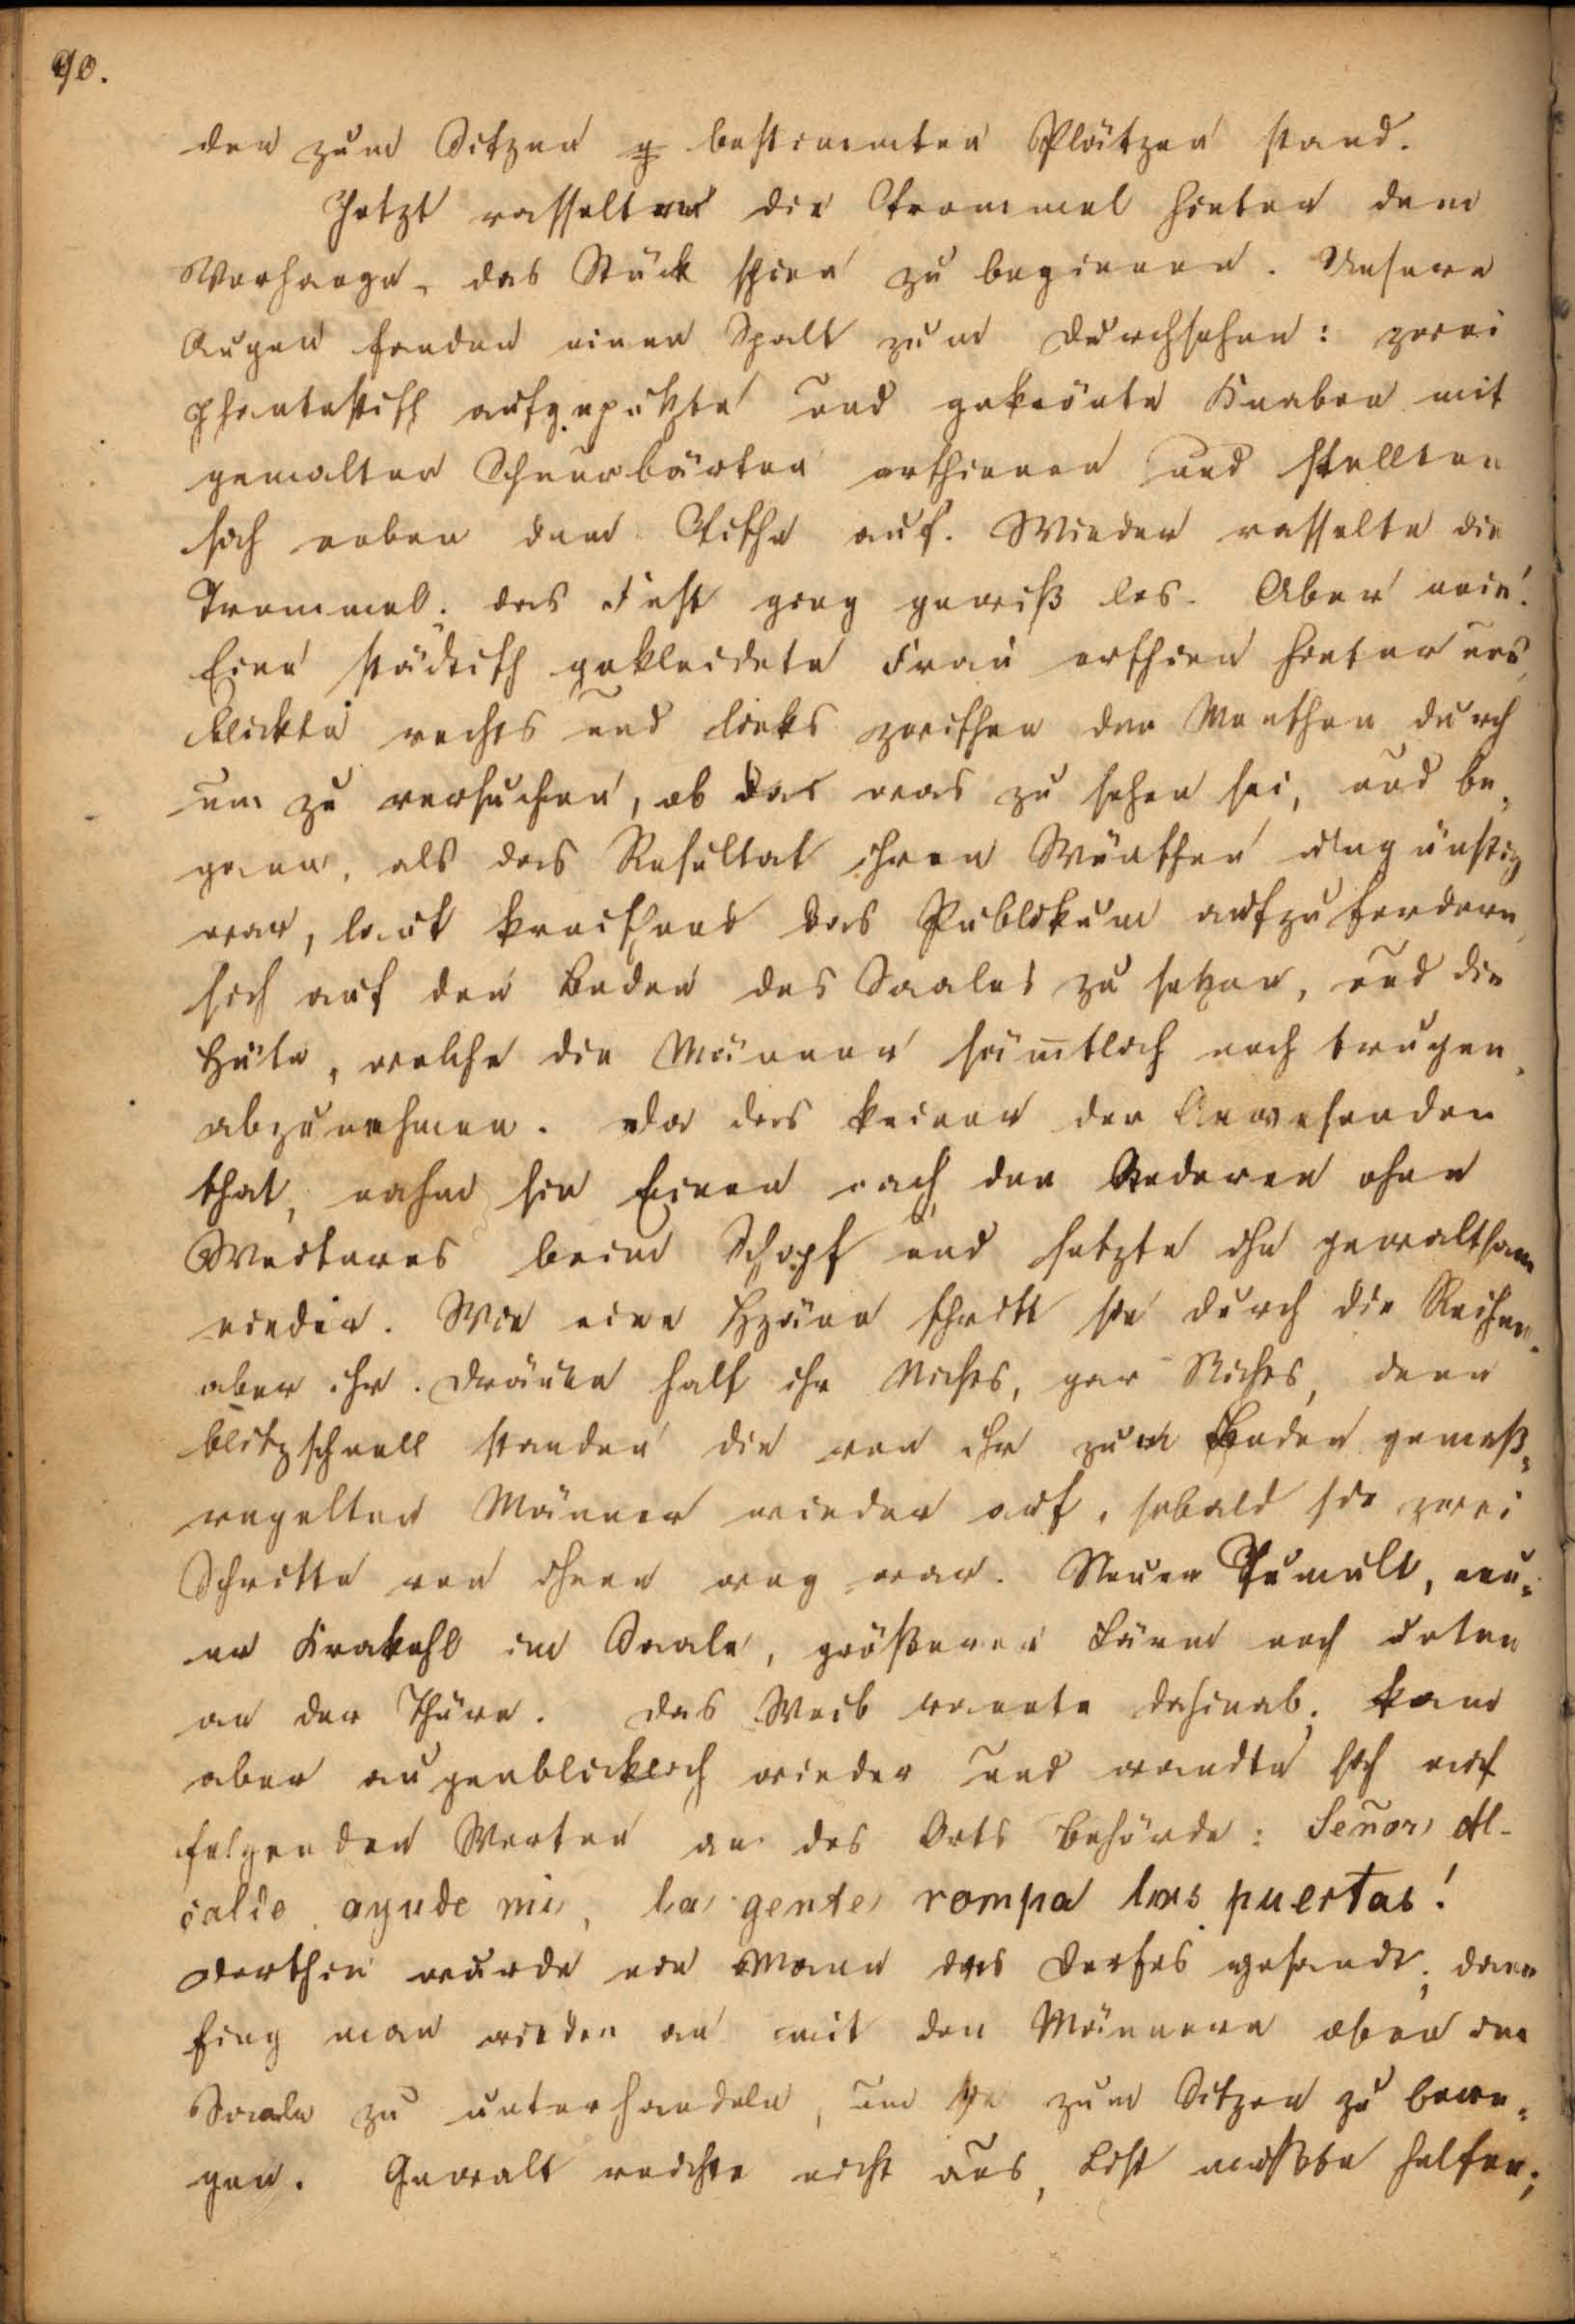 90.
den zum Sitzen g bestimmten Plätzen stand.
Jetzt rasselten die Trommel hinter dem
Vorhange, das Stück schien zu beginnen. Unsere
Augen fanden einen Spalt zum Durchsehen: zwei
phantastisch aufgeputzte und gekrönte Knaben mit
gemalten Schnurbärten erschienen und stellten
sich neben dem Tische auf. Wieder rasselte die
Trommel; das Fest ging gewiß los. Aber nein!
Eine städtisch gekleidete Frau erschien hinter uns,
blickte rechts und links zwischen den Menschen durch
um zu versuchen, ob das was zu sehen sei, und be-
gann, als das Resultat ihren Wünschen ungünstig
war, laut kreischend das Publikum aufzufordern,
sich auf den Boden des Saales zu setzen, und die
Hüte, welche die Männer säm̅tlich noch trugen,
abzunehmen. Da das keiner der Anwesenden
that, nahm sie Einen nach den Anderen ohne
Weiteres beim Schopf und setzte ihn gewaltsam
nieder. Wie eine Hyäne schritt sie durch die Reihen,
aber ihr Dräuen half ihr Nichts, gar Nichts, denn
blitzschnell standen die von ihr zum Boden gemaß-
regelten Männer wieder auf, sobald sie zwei
Schritte von ihnen weg war. Neuer Tumult, neu-
er Krakehl im Saale, größerer Lärm noch unten
an der Thüre. Das Weib rannte dahinab, kam
aber augenblicklich wieder und wandte sich mit
folgenden Worten an des Orts Behörde: Señor Al-
calde ayude mi, la gente rompa las puertas!
Dorthin wurde ein Mann des Dorfes gesandt; dann
fing man wieder an mit den Männern oben im
Saale zu unterhandeln, um sie zum Sitzen zu bewe-
gen. Gewalt reichte nicht aus, List mußte helfen;